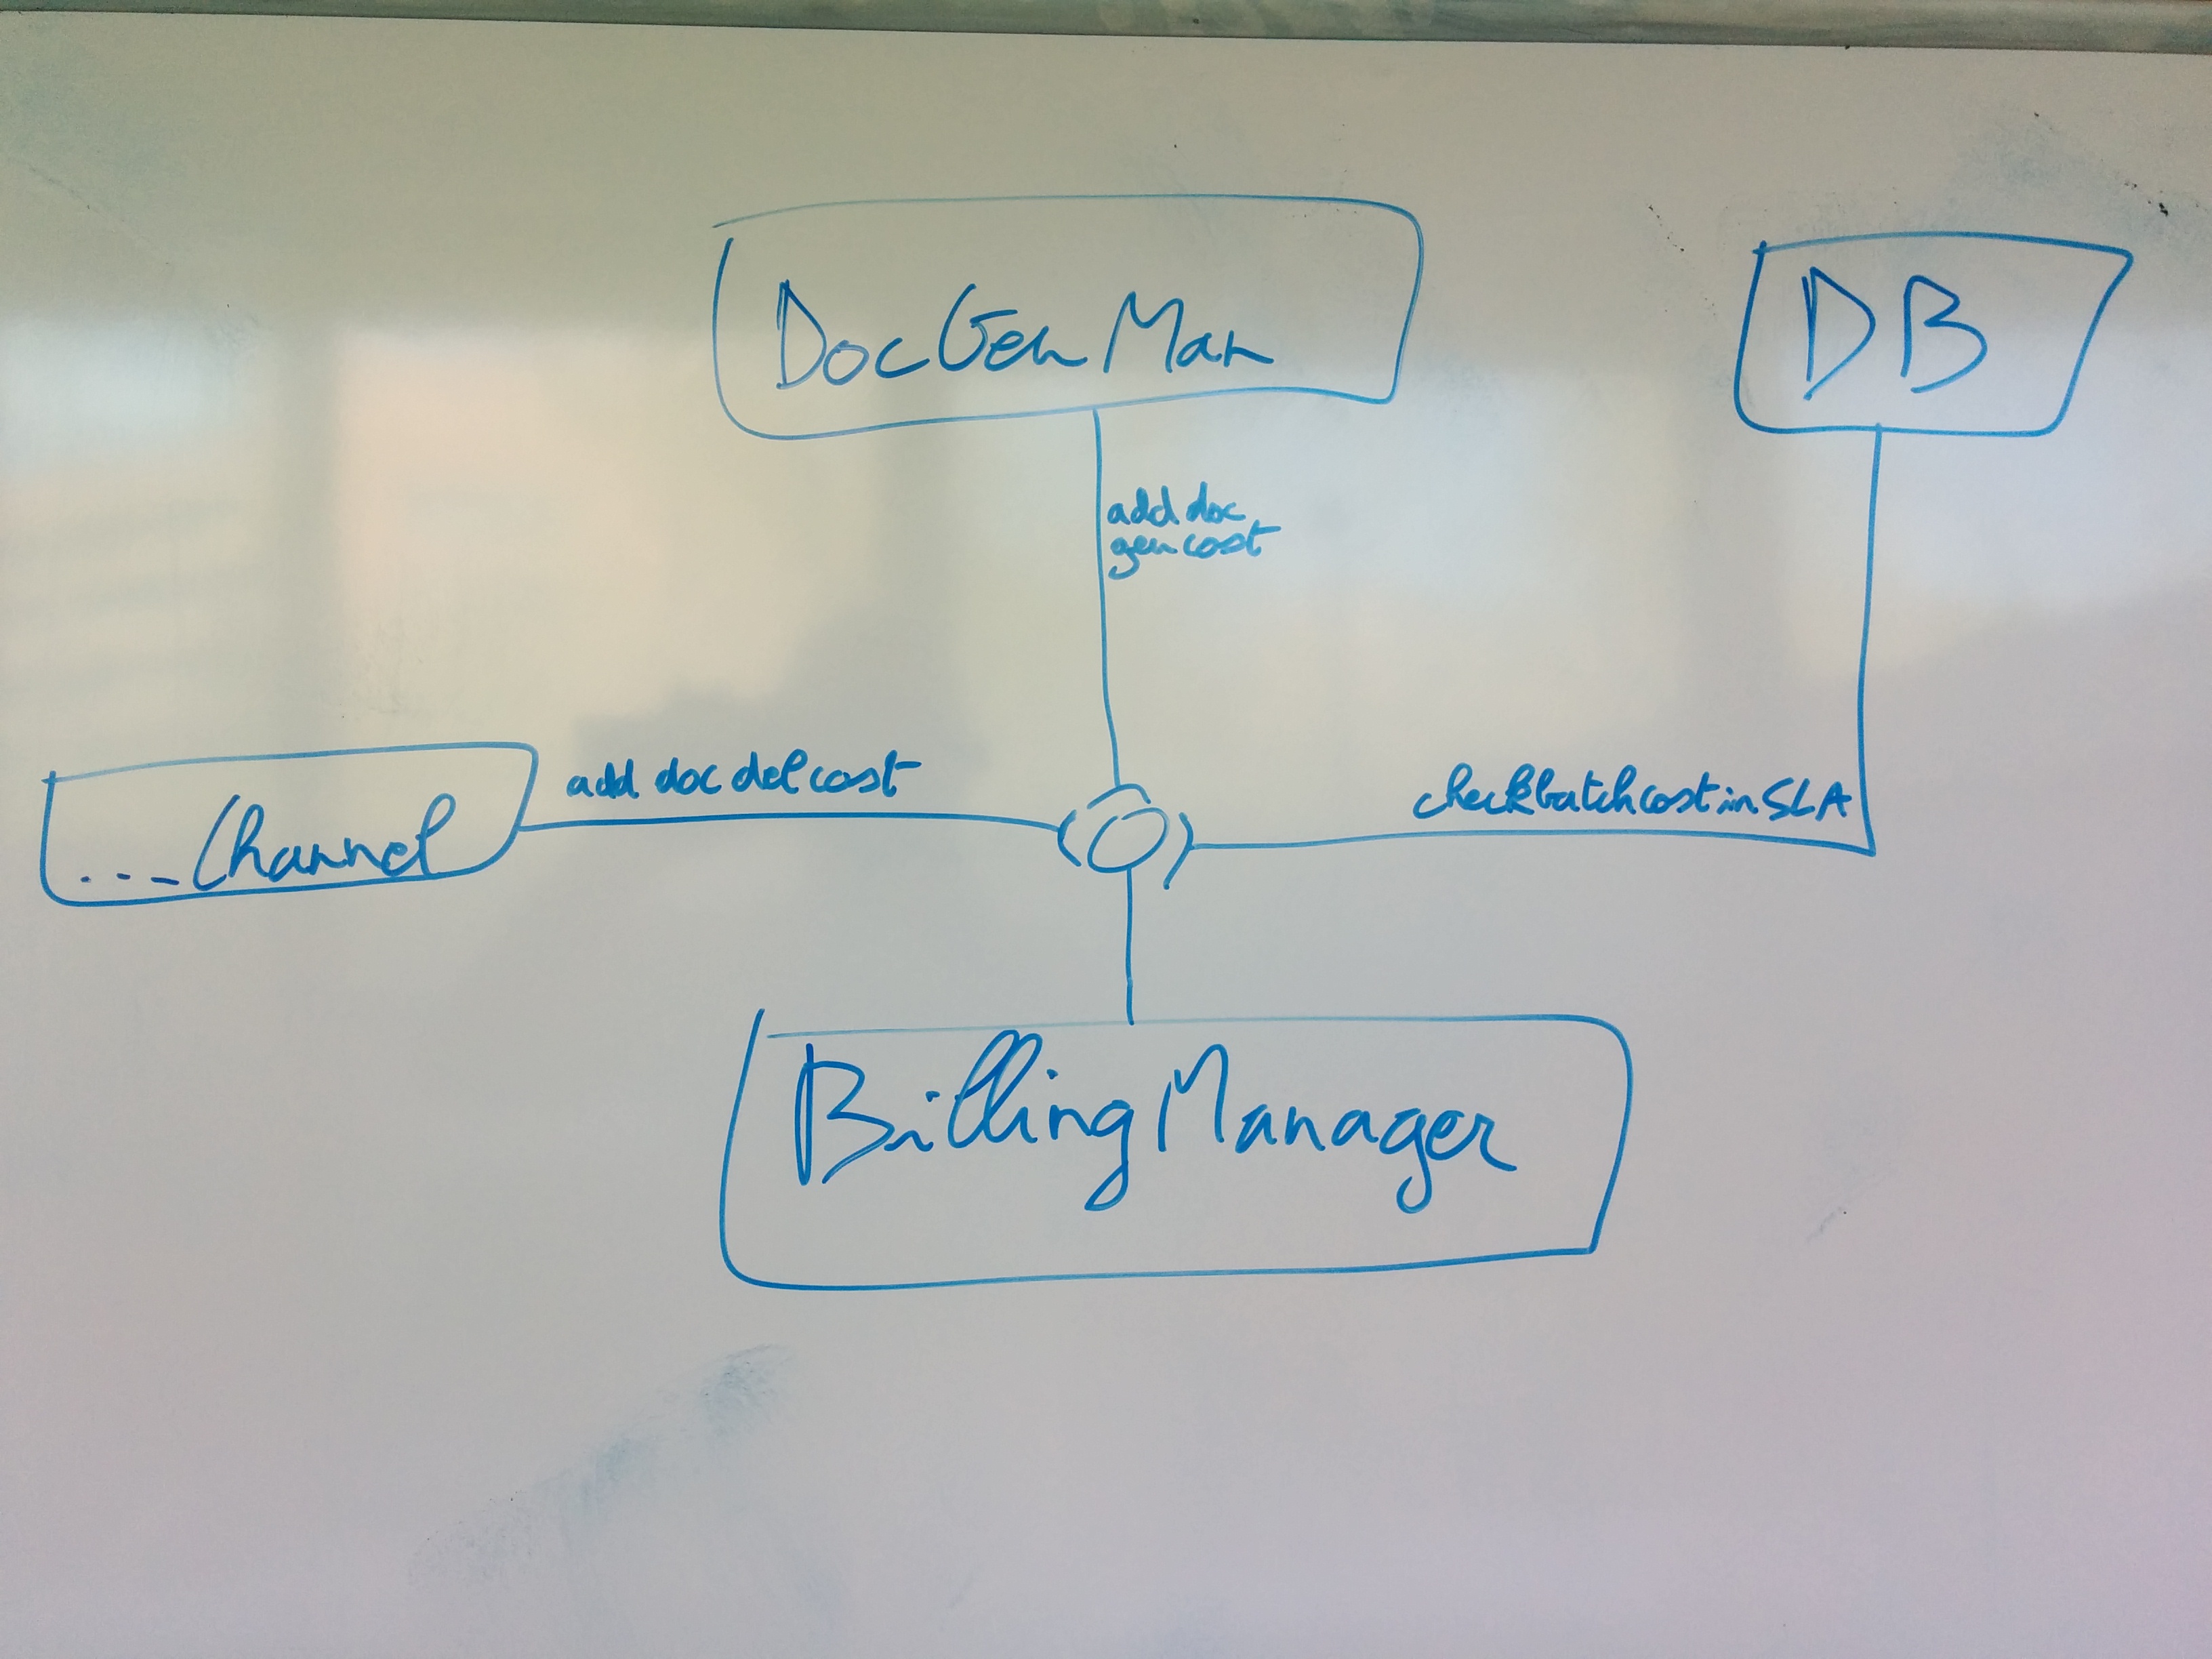 DocGenMan
DB
add doc
gen cost
add doc del cost
check batch cost in SLA
... Channel
BillingManager